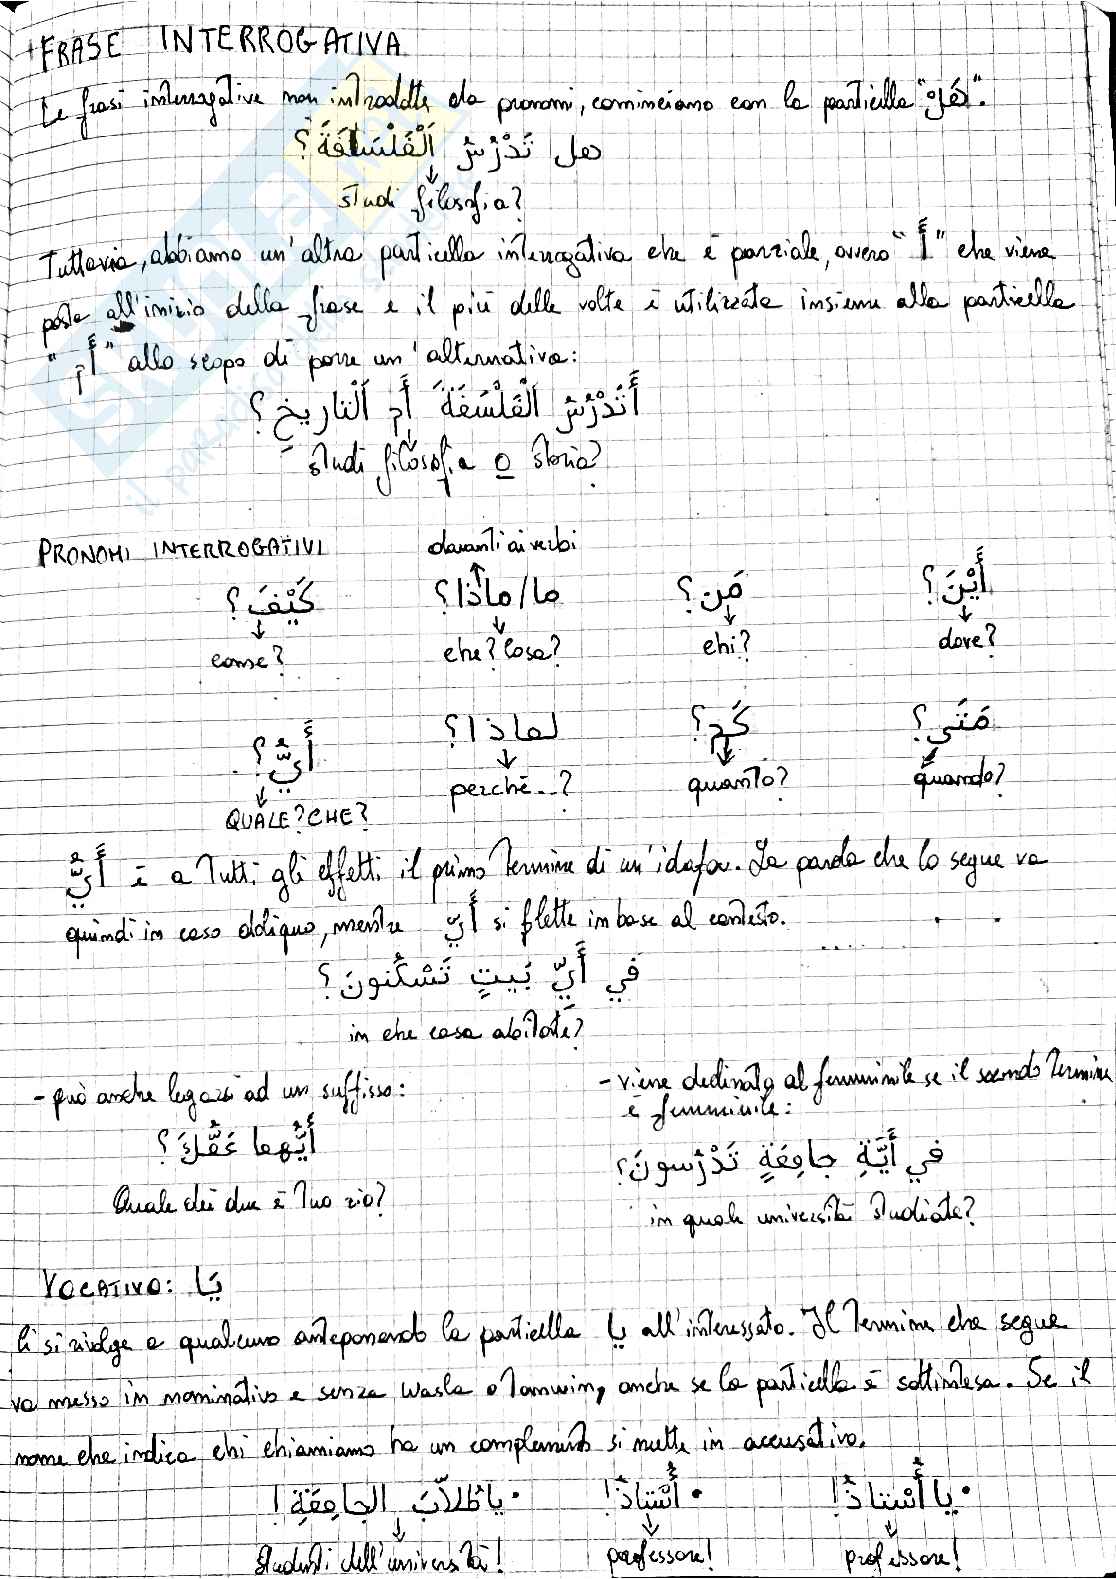 FRASE INTERROGATIVA
Le frasi interrogative non introdotte da pronomi, cominciano con la particella "هَلْ".
هل تَدْرُسُ اَلْفَلْسَفَةَ؟
studi filosofia?
Tuttavia, abbiamo un'altra particella interrogativa che è parziale, ovvero "أَ" che viene
posta all'inizio della frase e il più delle volte è utilizzata insieme alla particella
"أَم" allo scopo di porre un'alternativa:
أَتَدْرُسُ اَلْفَلْسَفَةَ أَم اَلْتاريخِ؟
studi filosofia o storia?
PRONOMI INTERROGATIVI davanti ai verbi
كَيْفَ؟ ما/ماذا؟ مَن؟ أَيْنَ؟
come? che? Cosa? chi? dove?
أَيُّ؟ لماذا؟ كَم؟ مَتَى؟
QUALE? CHE? perché..? quanto? quando?
أَيُّ è a tutti gli effetti il primo termine di un'idafa. La parola che lo segue va
quindi in caso obliquo, mentre أَيّ si flette in base al contesto.
في أَيِّ بَيتٍ تَسْكُنونَ؟
in che casa abitate?
- può anche legarsi ad un suffisso:
أَيُّهما عَمُّكَ؟
Quale dei due è tuo zio?
- viene declinato al femminile se il secondo termine
è femminile:
في أَيَّةِ جامِعَةٍ تَدْرُسونَ؟
in quale università studiate?
VOCATIVO: يَا
Ci si rivolge a qualcuno anteponendo la particella يا all'interessato. Il termine che segue
va messo in nominativo e senza wasla o tanwin, anche se la particella è sottintesa. Se il
nome che indica chi chiamiamo ha un complemento si mette in accusativo.
• يا أُسْتاذُ! • أُسْتاذُ! • يا طُلاّبَ الجامِعَةِ!
studenti dell'università! professore! professore!